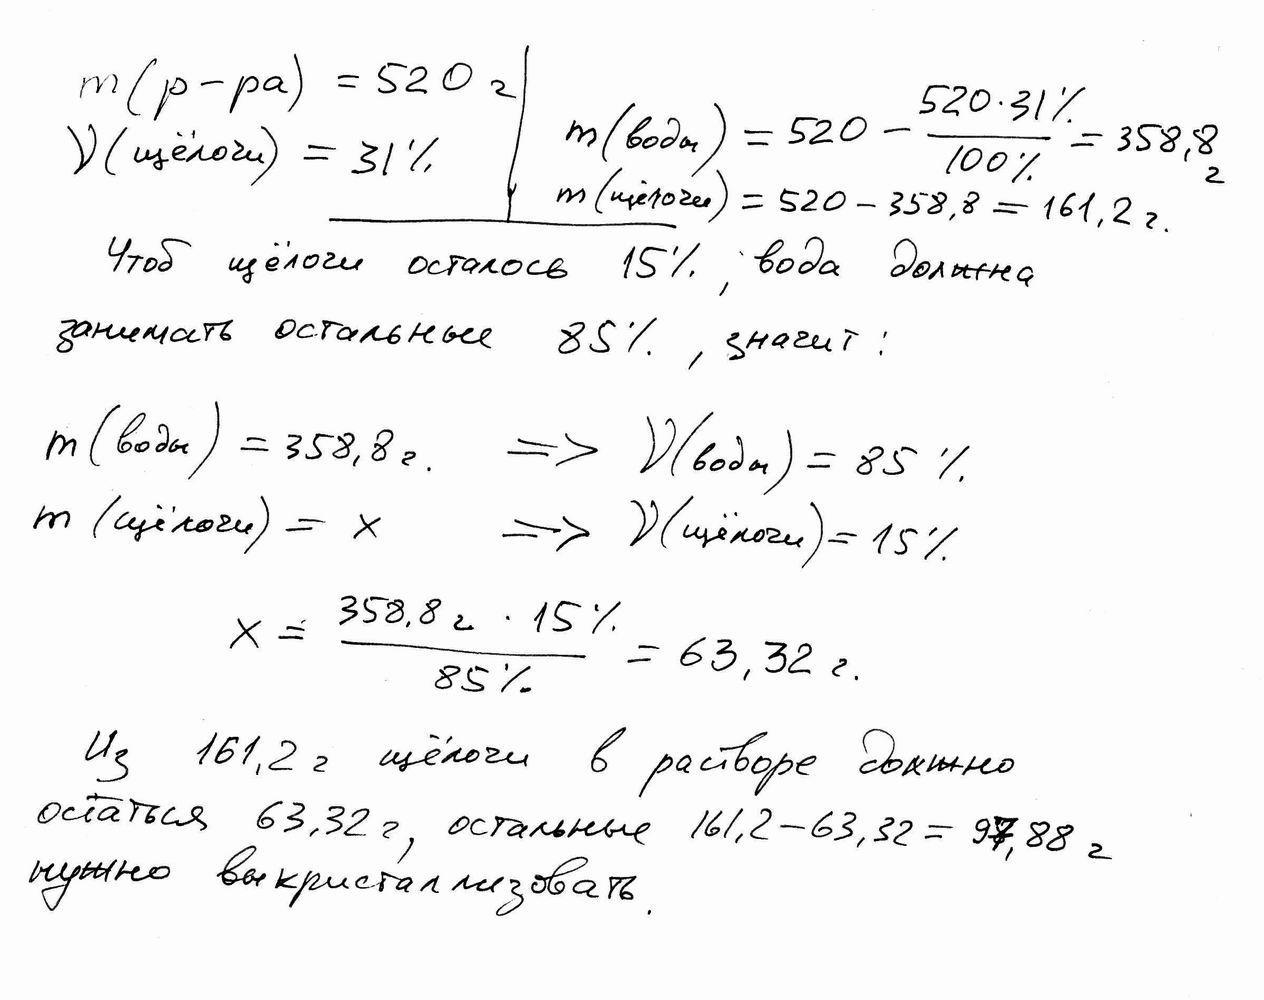 m(р-ра) = 520 г
V(щёлочи) = 31%
m(воды) = 520 - 520·31% / 100% = 358,8 г
m(щёлочи) = 520 - 358,8 = 161,2 г.
Чтоб щёлочи осталось 15%, вода должна
занимать остальные 85%, значит:
m(воды) = 358,8 г. => V(воды) = 85%
m(щёлочи) = x => V(щёлочи) = 15%
x = 358,8 г · 15% / 85% = 63,32 г.
Из 161,2 г щёлочи в растворе должно
остаться 63,32 г, остальные 161,2-63,32 = 97,88 г
нужно выкристаллизовать.